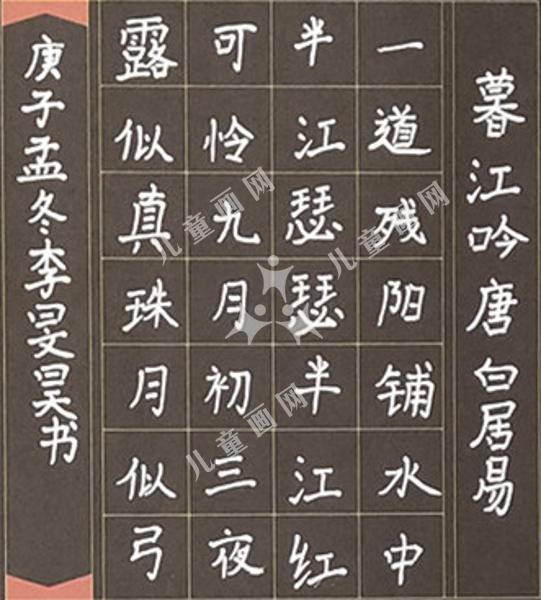 暮江吟唐白居易
一道残阳铺水中
半江瑟瑟半江红
可怜九月初三夜
露似真珠月似弓
庚子孟冬李旻昊书
儿童画网
儿童画网
儿童画网